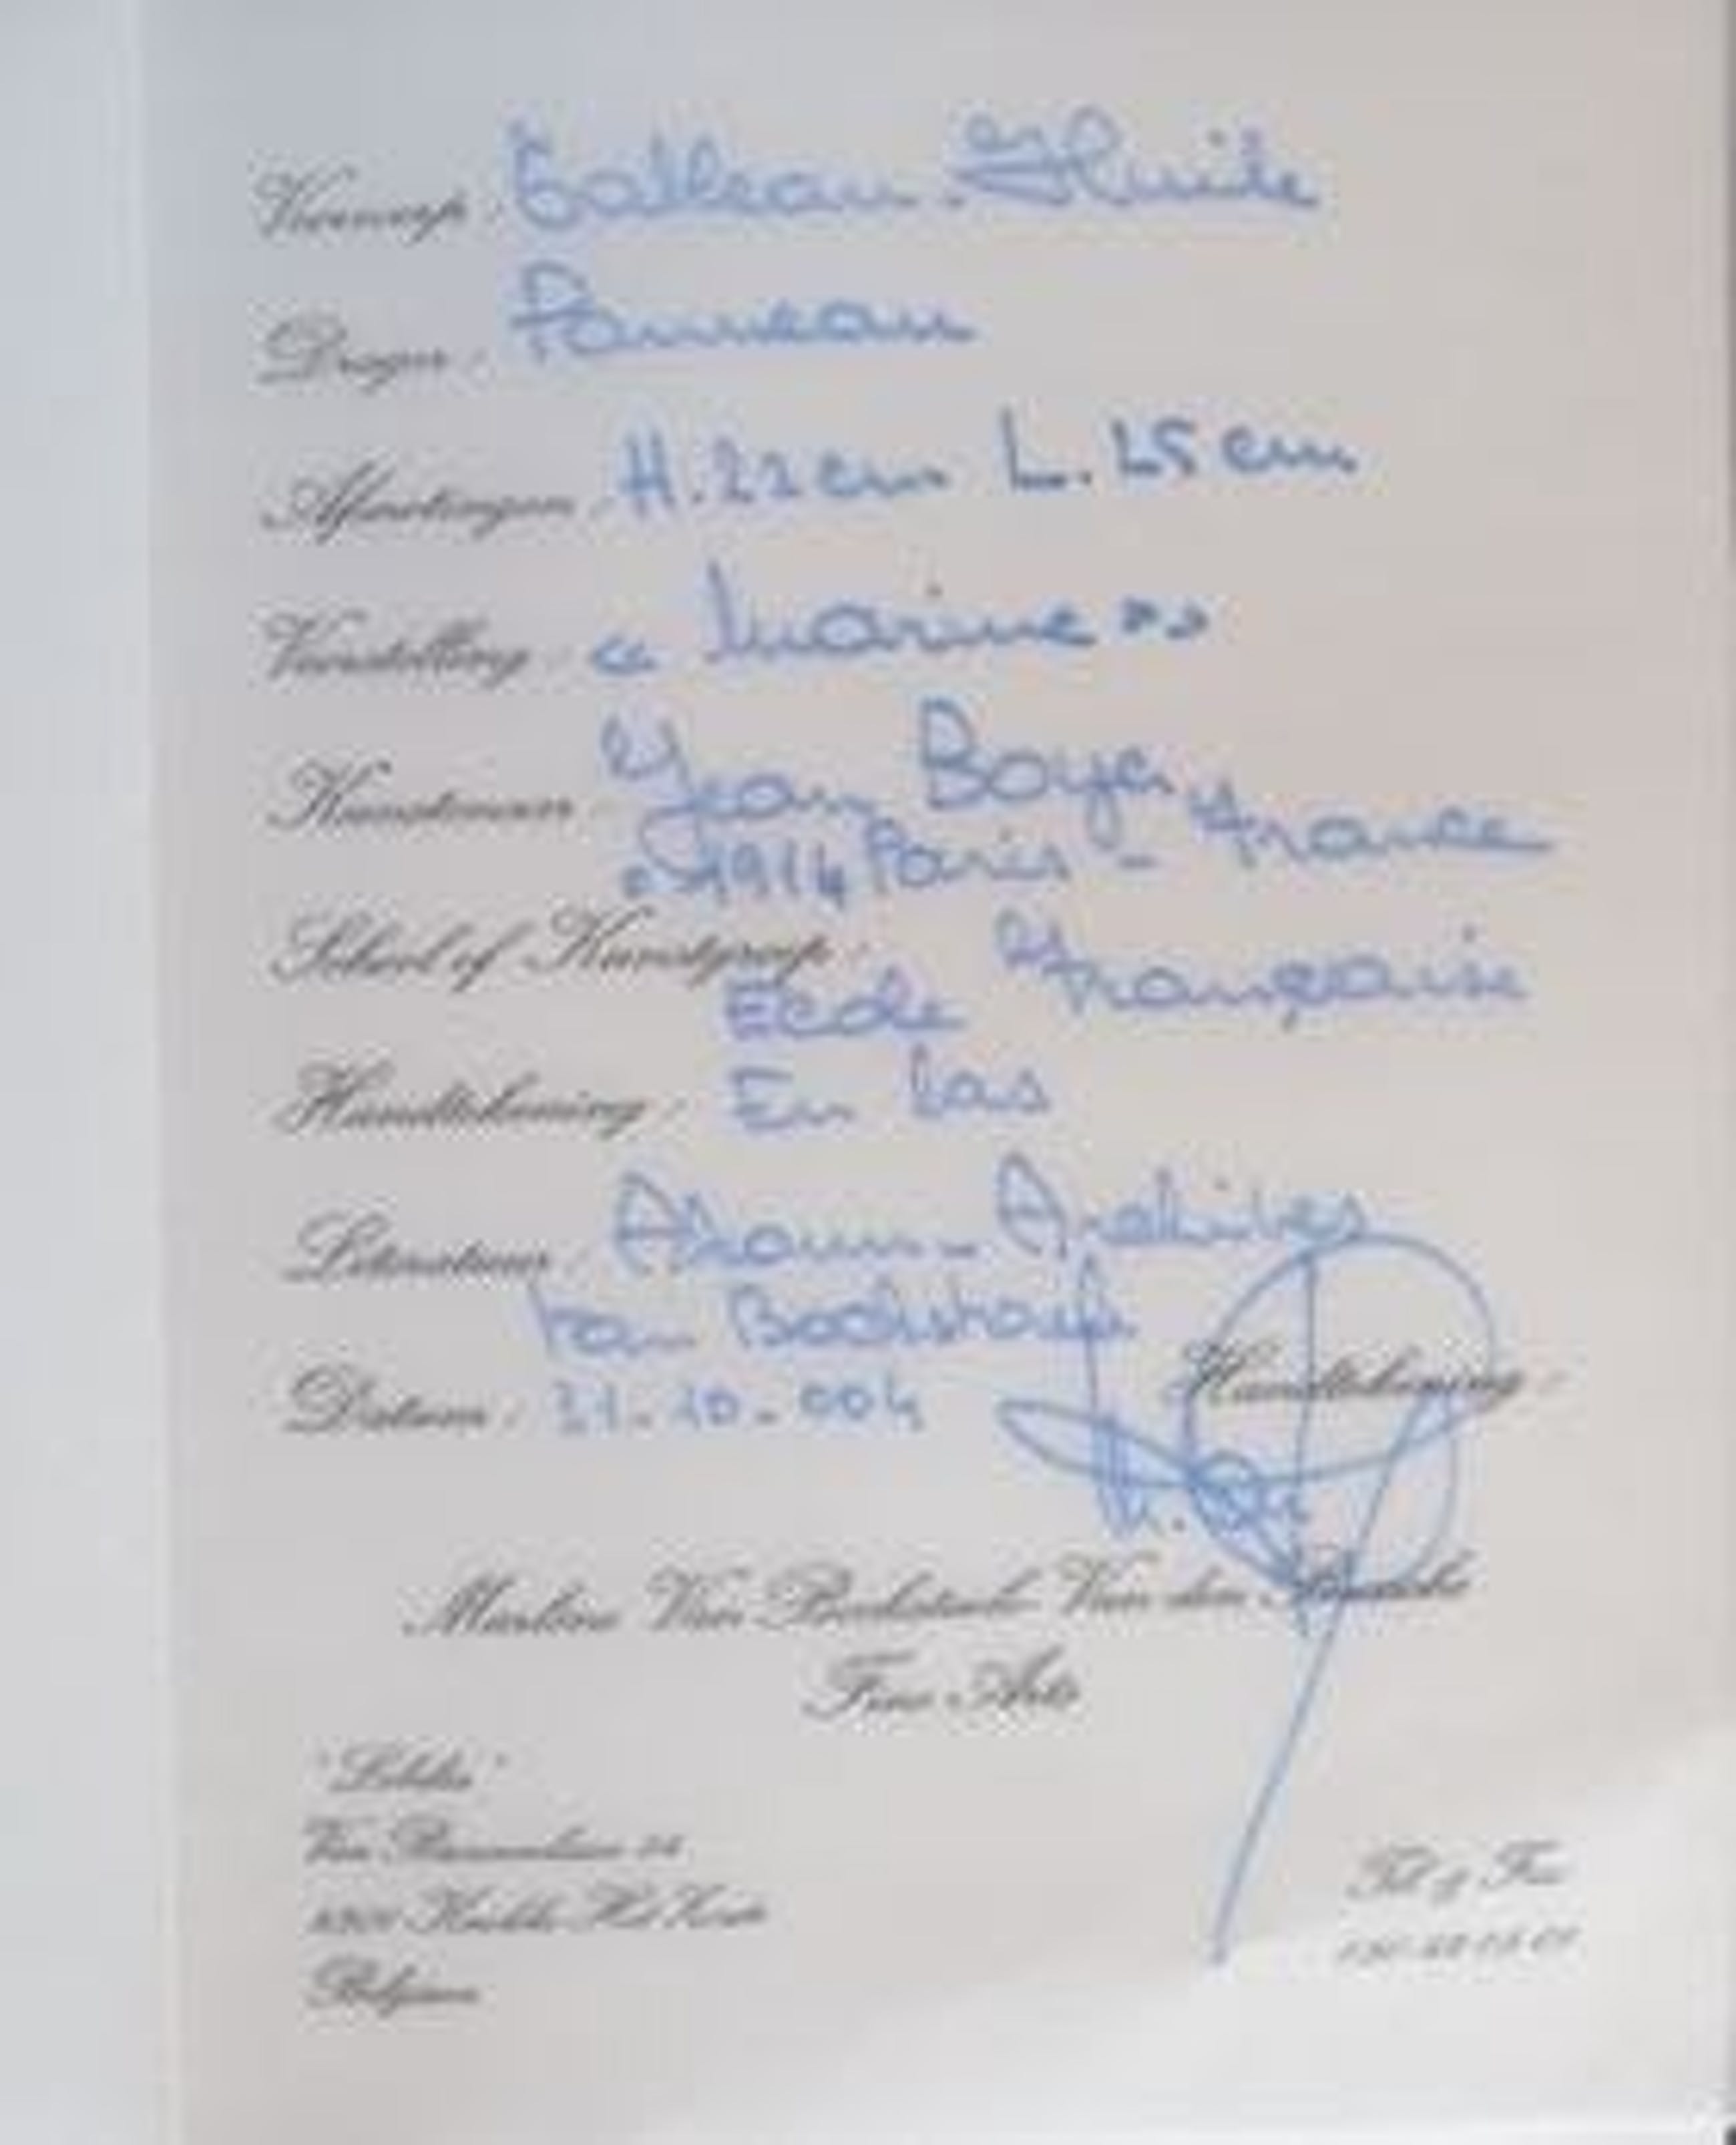 Voorwerp : Tableau - Huile
Drager : Panneau
Afmetingen : H. 22 cm L. 25 cm
Voorstelling : « Marine »
Kunstenaar : Jean Boyer
° 1914 Paris - France
School of Kunstgroep :
Ecole Française
Handtekening : En bas
Literatuur : - Archives
Van Bockstaele
Datum : 21.10.004 Handtekening :
Van Bockstaele - Van den
Fine Arts
Van
Knokke-Het Zoute
Belgium
Tel. & Fax